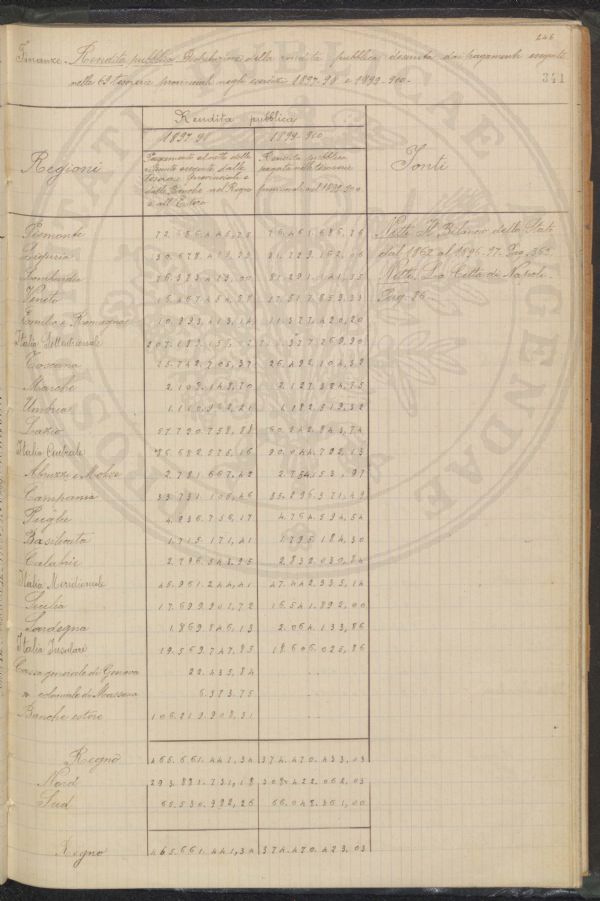 246
Finanze. Rendita pubblica. Distribuzione della rendita pubblica desunta dai pagamenti eseguiti
341
nelle 69 tesorerie provinciali negli esercizi 1897-98 e 1899-900.
Rendita pubblica
1897-98 1899-900
Regioni
Pagamenti al netto delle ritenute eseguiti dalle Tesorerie Provinciali e dalle Banche nel Regno e all'Estero
Rendita pubblica pagata nelle tesorerie provinciali nel 1899-900
Fonti
Piemonte 72.686.446,78 76.461.686,76
Nitti Il Bilancio dello Stato
Liguria
dal 1862 al 1896-97. Pag. 365
Lombardia 81.291.141,35
Nitti. La Città di Napoli.
Veneto 17.517.859,33
Pag. 26
Emilia e Romagna 10.893.413,14 11.377.420,20
Italia Settentrionale
Toscana 25.742.705,37 26.492.104,38
Marche 2.109.148,70 2.127.324,75
Umbria 1.182.519,32
Lazio 57.790.758,88 60.242.843,74
Italia Centrale 86.682.575,16 90.044.792,13
Abruzzi e Molise 2.781.667,42 2.754.153,97
Campania 33.731.106,46 35.896.371,49
Puglie 4.936.756,17 4.764.594,54
Basilicata 1.715.171,41 1.795.184,30
Calabrie 2.796.543,95 2.832.030,84
Italia Meridionale 45.961.244,41 47.442.335,14
Sicilia 17.699.901,72 16.541.892,00
Sardegna 1.869.846,13 2.064.133,86
Italia Insulare 19.569.747,85 18.606.025,86
Cassa generale di Genova 22.435,84
" coloniale di Massaua 6.373,75
Banche estere 106.219.908,31
Regno 465.661.441,34 374.470.433,03
Nord 293.891.731,18 308.422.062,03
Sud 65.530.992,26 66.048.361,00
Regno 465.661.441,34 374.470.423,03